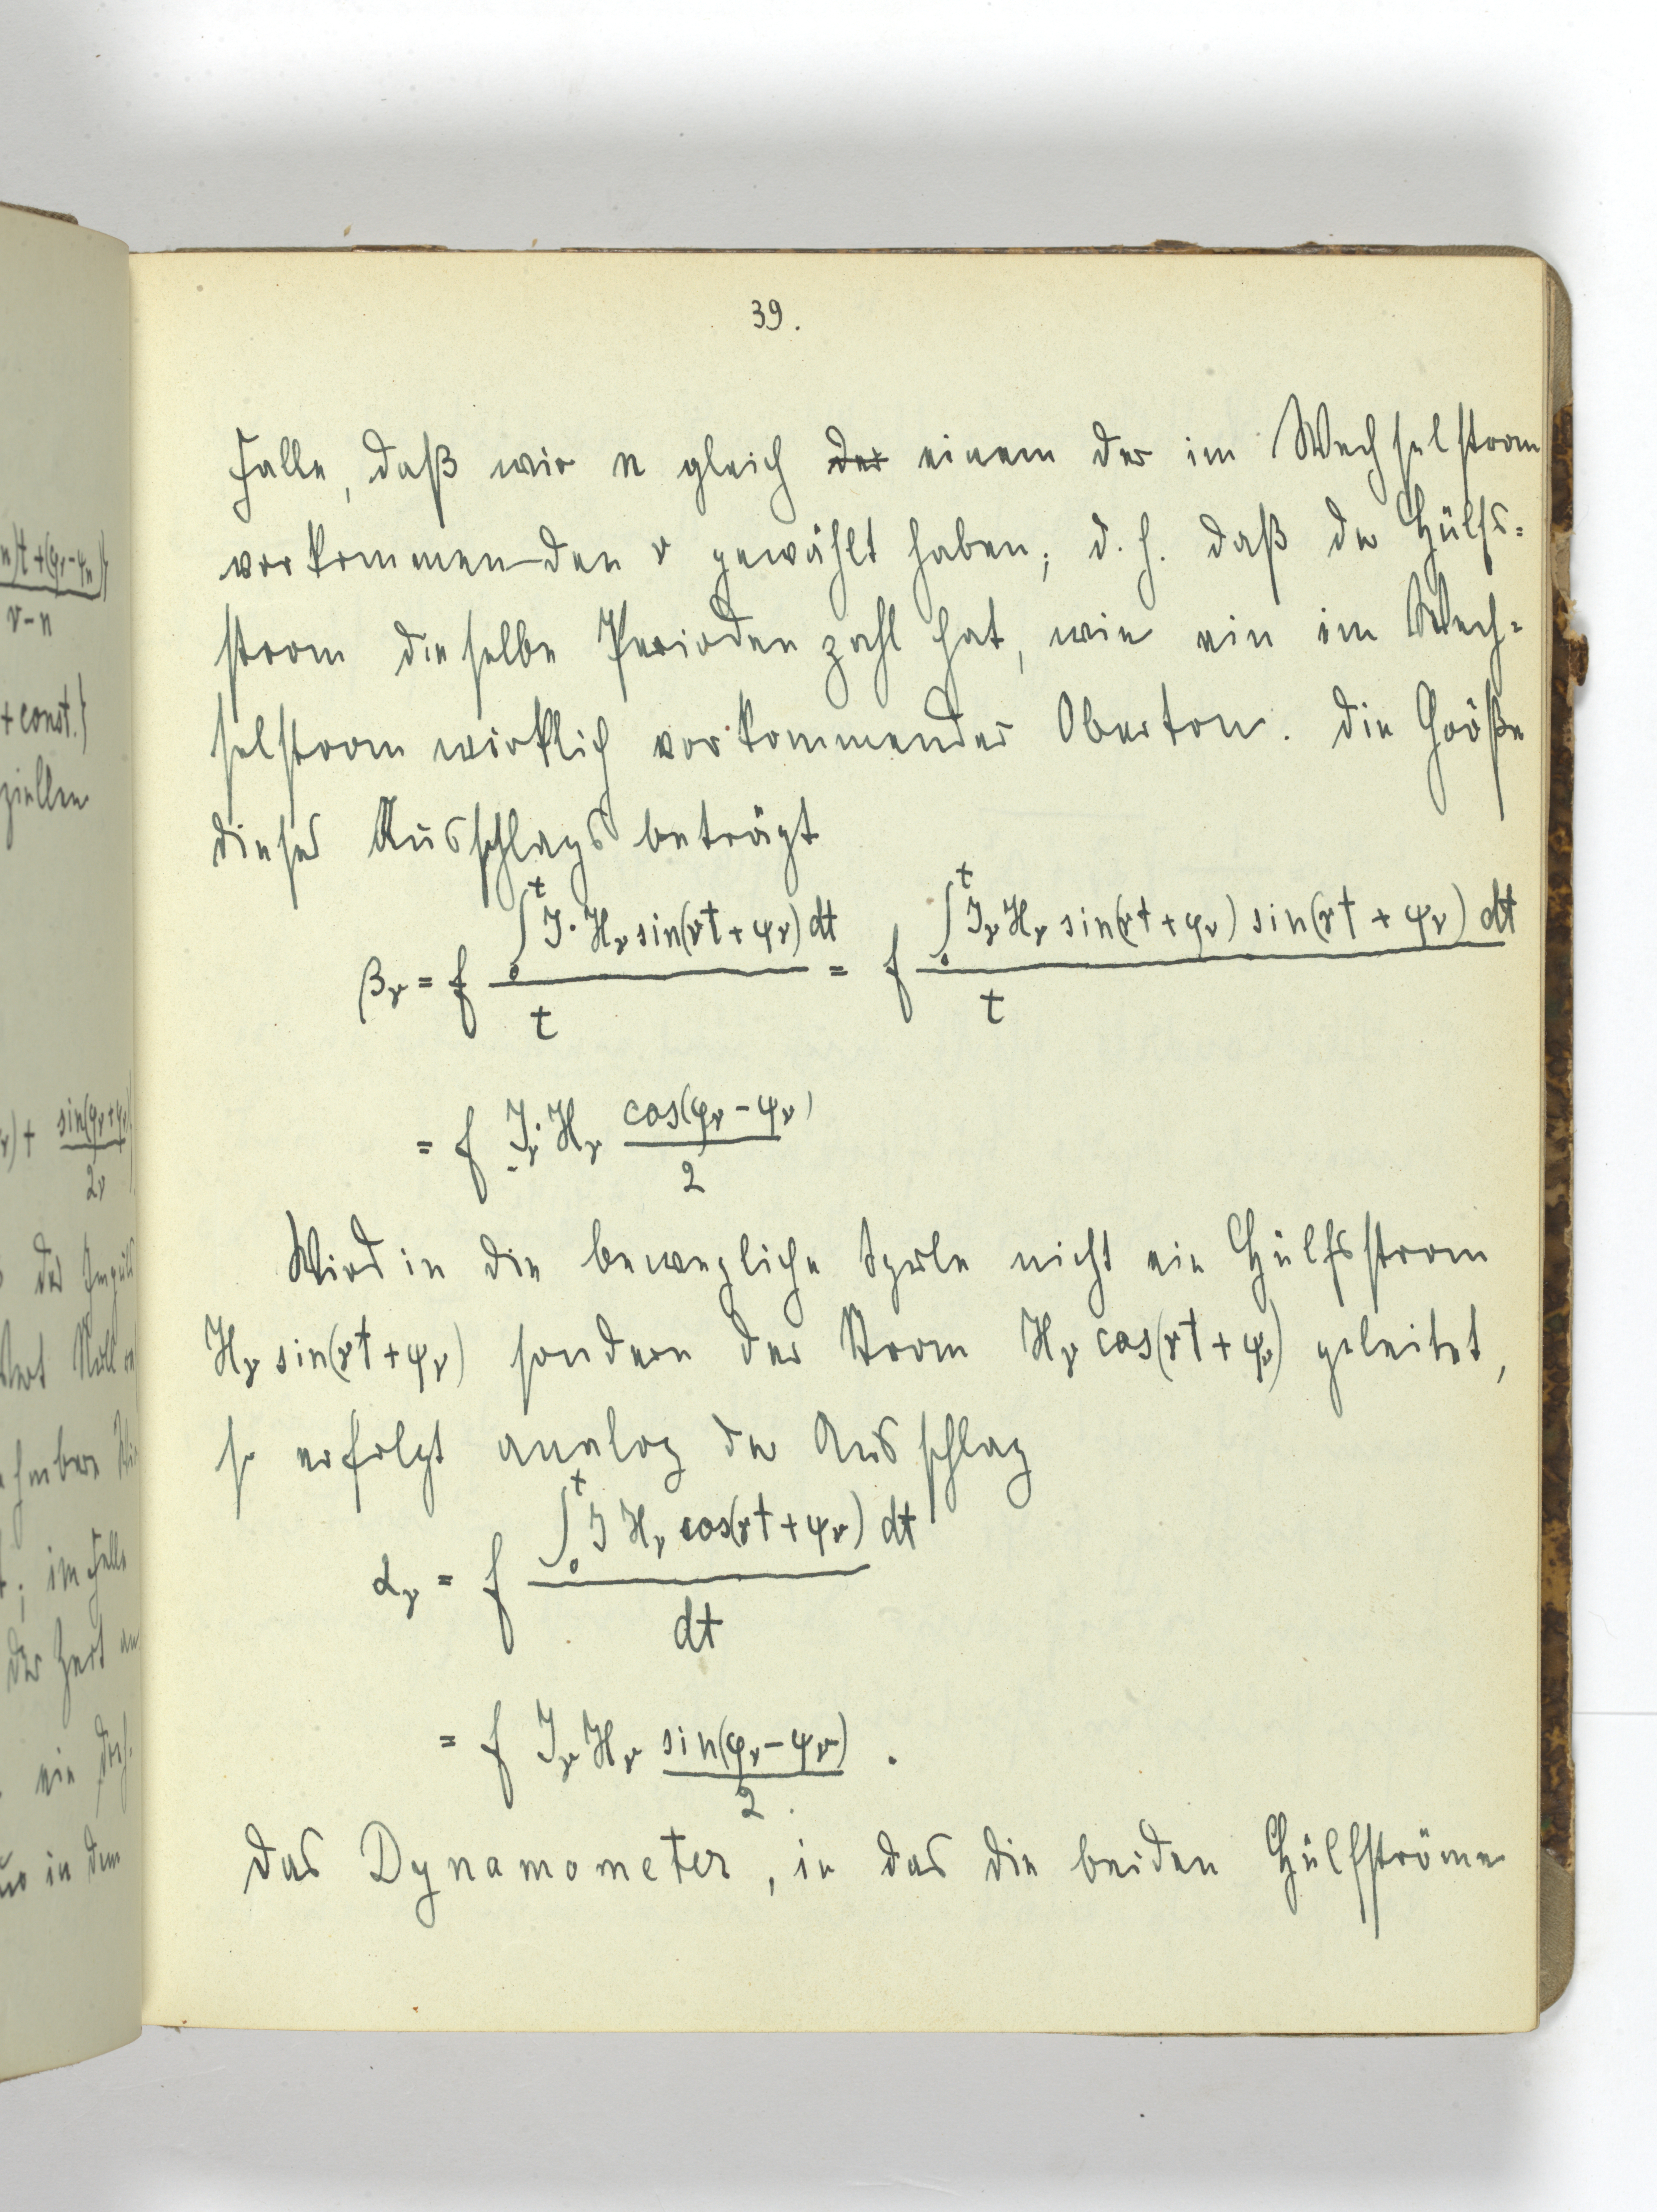 39.
Falle, daß wir n gleich der einem der im Wechselstrom
vorkommenden ν gewählt haben; d.h. daß der Hülfs=
strom dieselbe Periodenzahl hat, wie ein im Wech=
selstrom wirklich vorkommender Oberton. Die Größe
dieses Ausschlags beträgt
β_ν = f ∫₀ᵗ J·H_ν sin(νt+ψ_ν) dt / t = f ∫₀ᵗ J_ν H_ν sin(νt+φ_ν) sin(νt+ψ_ν) dt / t
= f J_ν·H_ν cos(φ_ν-ψ_ν) / 2
Wird in die bewegliche Spule nicht ein Hülfsstrom
H_ν sin(νt+ψ_ν) sondern der Strom H_ν cos(νt+ψ_ν) geleitet,
so erfolgt analog der Ausschlag
α_ν = f ∫₀ᵗ J H_ν cos(νt+ψ_ν) dt / dt
= f J_ν H_ν sin(φ_ν-ψ_ν) / 2 .
Das Dynamometer, in das die beiden Hülfströme
n)t+(φ_ν-ψ_n)}
ν-n
+const.}
ziellen
)+ sin(φ_ν+ψ_ν)
2ν
der
Null
; im Falle
der
ein
in dem